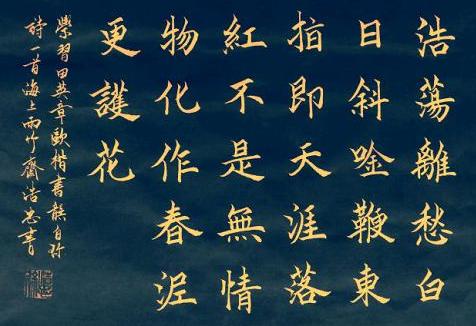 浩蕩離愁白
日斜唫鞭東
指即天涯落
紅不是無情
物化作春泥
更護花
學習田英章歐楷書龔自珍
詩一首海上雨竹齋浩書